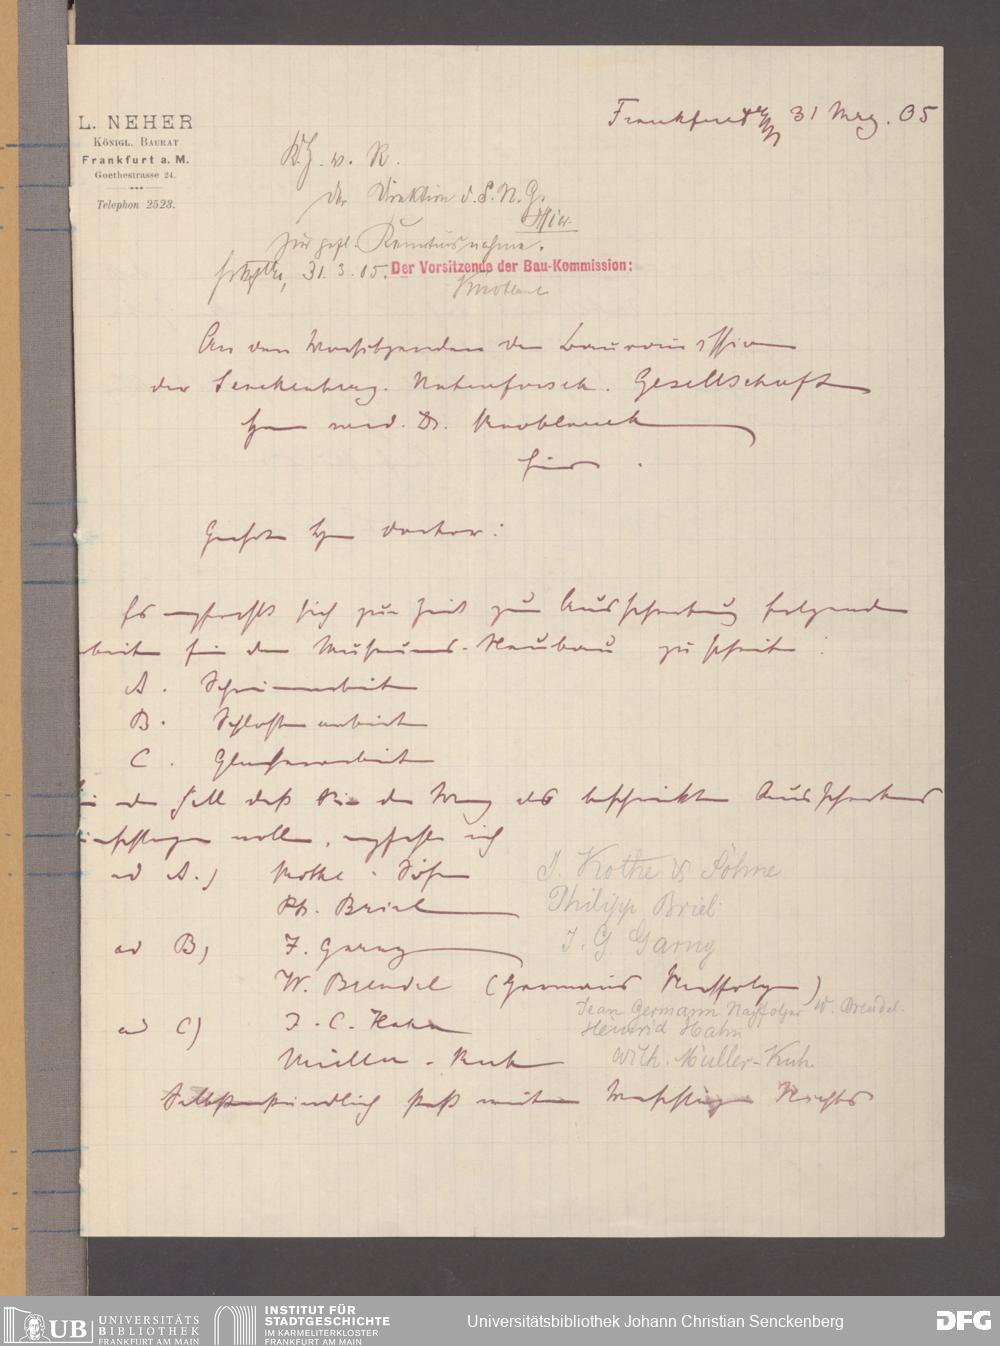 L. NEHER
KÖNIGL. BAURAT
Frankfurt a. M.
Goethestrasse 24.
Telephon 2523.
Frankfurt a/M 31 Mrz. 05
K.H. w. R.
Der Direktion d. S. N. G.
Hier.
zur gefl. Kenntnisnahme.
31. 3. 05. Der Vorsitzende der Bau-Kommission:
Knoblauch
An den Vorsitzenden der Baucommission
der Senckenberg. Naturforsch. Gesellschaft
Herrn med. Dr. Knoblauch
hier.
Geehrter Herr Doctor:
Es empfiehlt sich zur Zeit zur Ausschreibung folgender
Arbeiten für den Museums-Neubau zu schreiten:
A. Schreinerarbeiten
B. Schlosserarbeiten
C. Glaserarbeiten
der Fall daß Sie den Weg der beschränkten Ausschreibung
einschlagen wollen, empfehle ich
ad A.) Kothe & Söhne J. Kothe & Söhne
Ph. Briel Philipp Briel
ad B) F. Garny J. G Garny
W. Brendel (Germanns Nachfolger)
Jean Germann Nachfolger W. Brendel.
ad C) J. C. Hahn Heinrich Hahn
Müller-Kuh Wilh. Müller-Kuh.
Selbstverständlich steht weiteren Vorschlägen Nichts
UB UNIVERSITÄTS
BIBLIOTHEK
FRANKFURT AM MAIN
INSTITUT FÜR
STADTGESCHICHTE
IM KARMELITERKLOSTER
FRANKFURT AM MAIN
Universitätsbibliothek Johann Christian Senckenberg
DFG